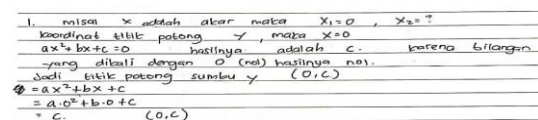 1. misal x adalah akar maka x₁=0 , x₂=?
koordinat titik potong y , maka x=0
ax²+bx+c=0 hasilnya adalah c. karena bilangan
yang dikali dengan 0 (nol) hasilnya nol.
Jadi titik potong sumbu y (0,c)
=ax²+bx+c
= a.0²+b.0+c
= c. (0,c)